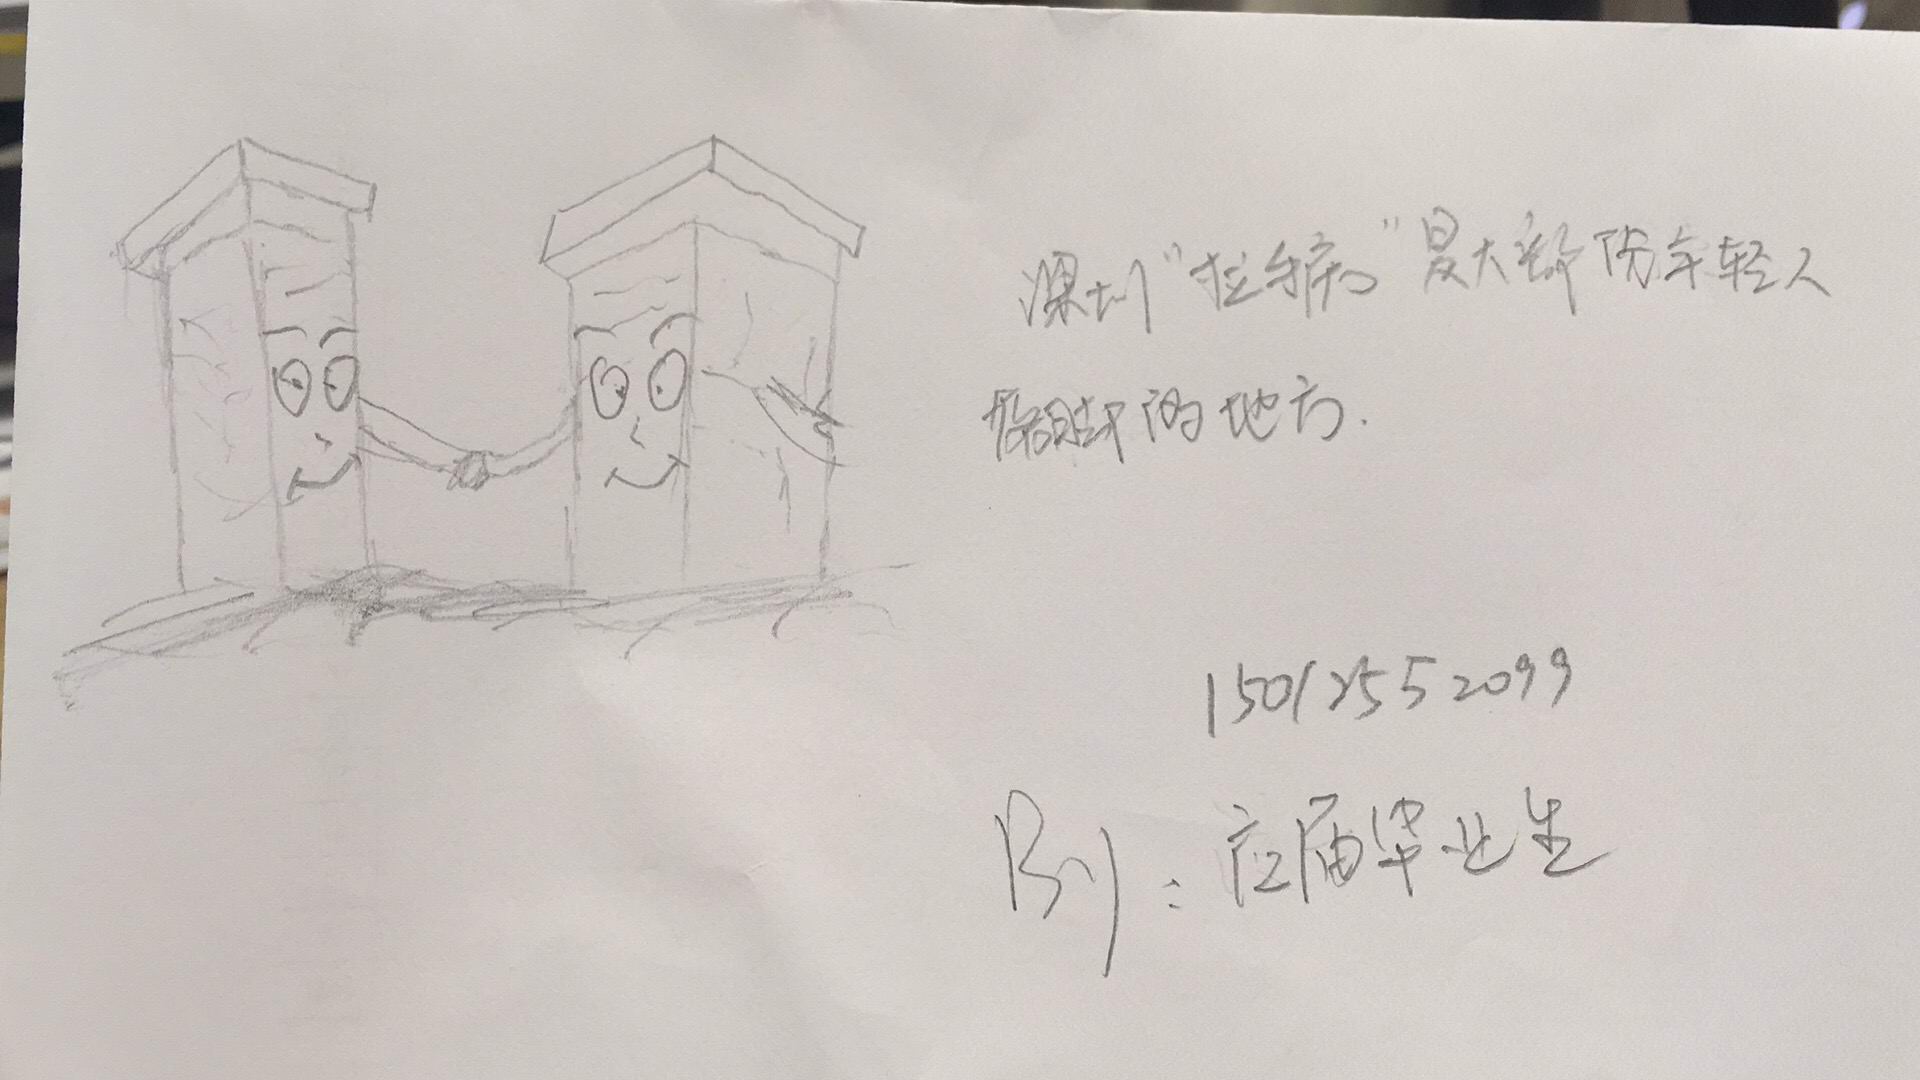 深圳“拉手病”是大部份年轻人
落脚的地方.
15012552099
By:应届毕业生